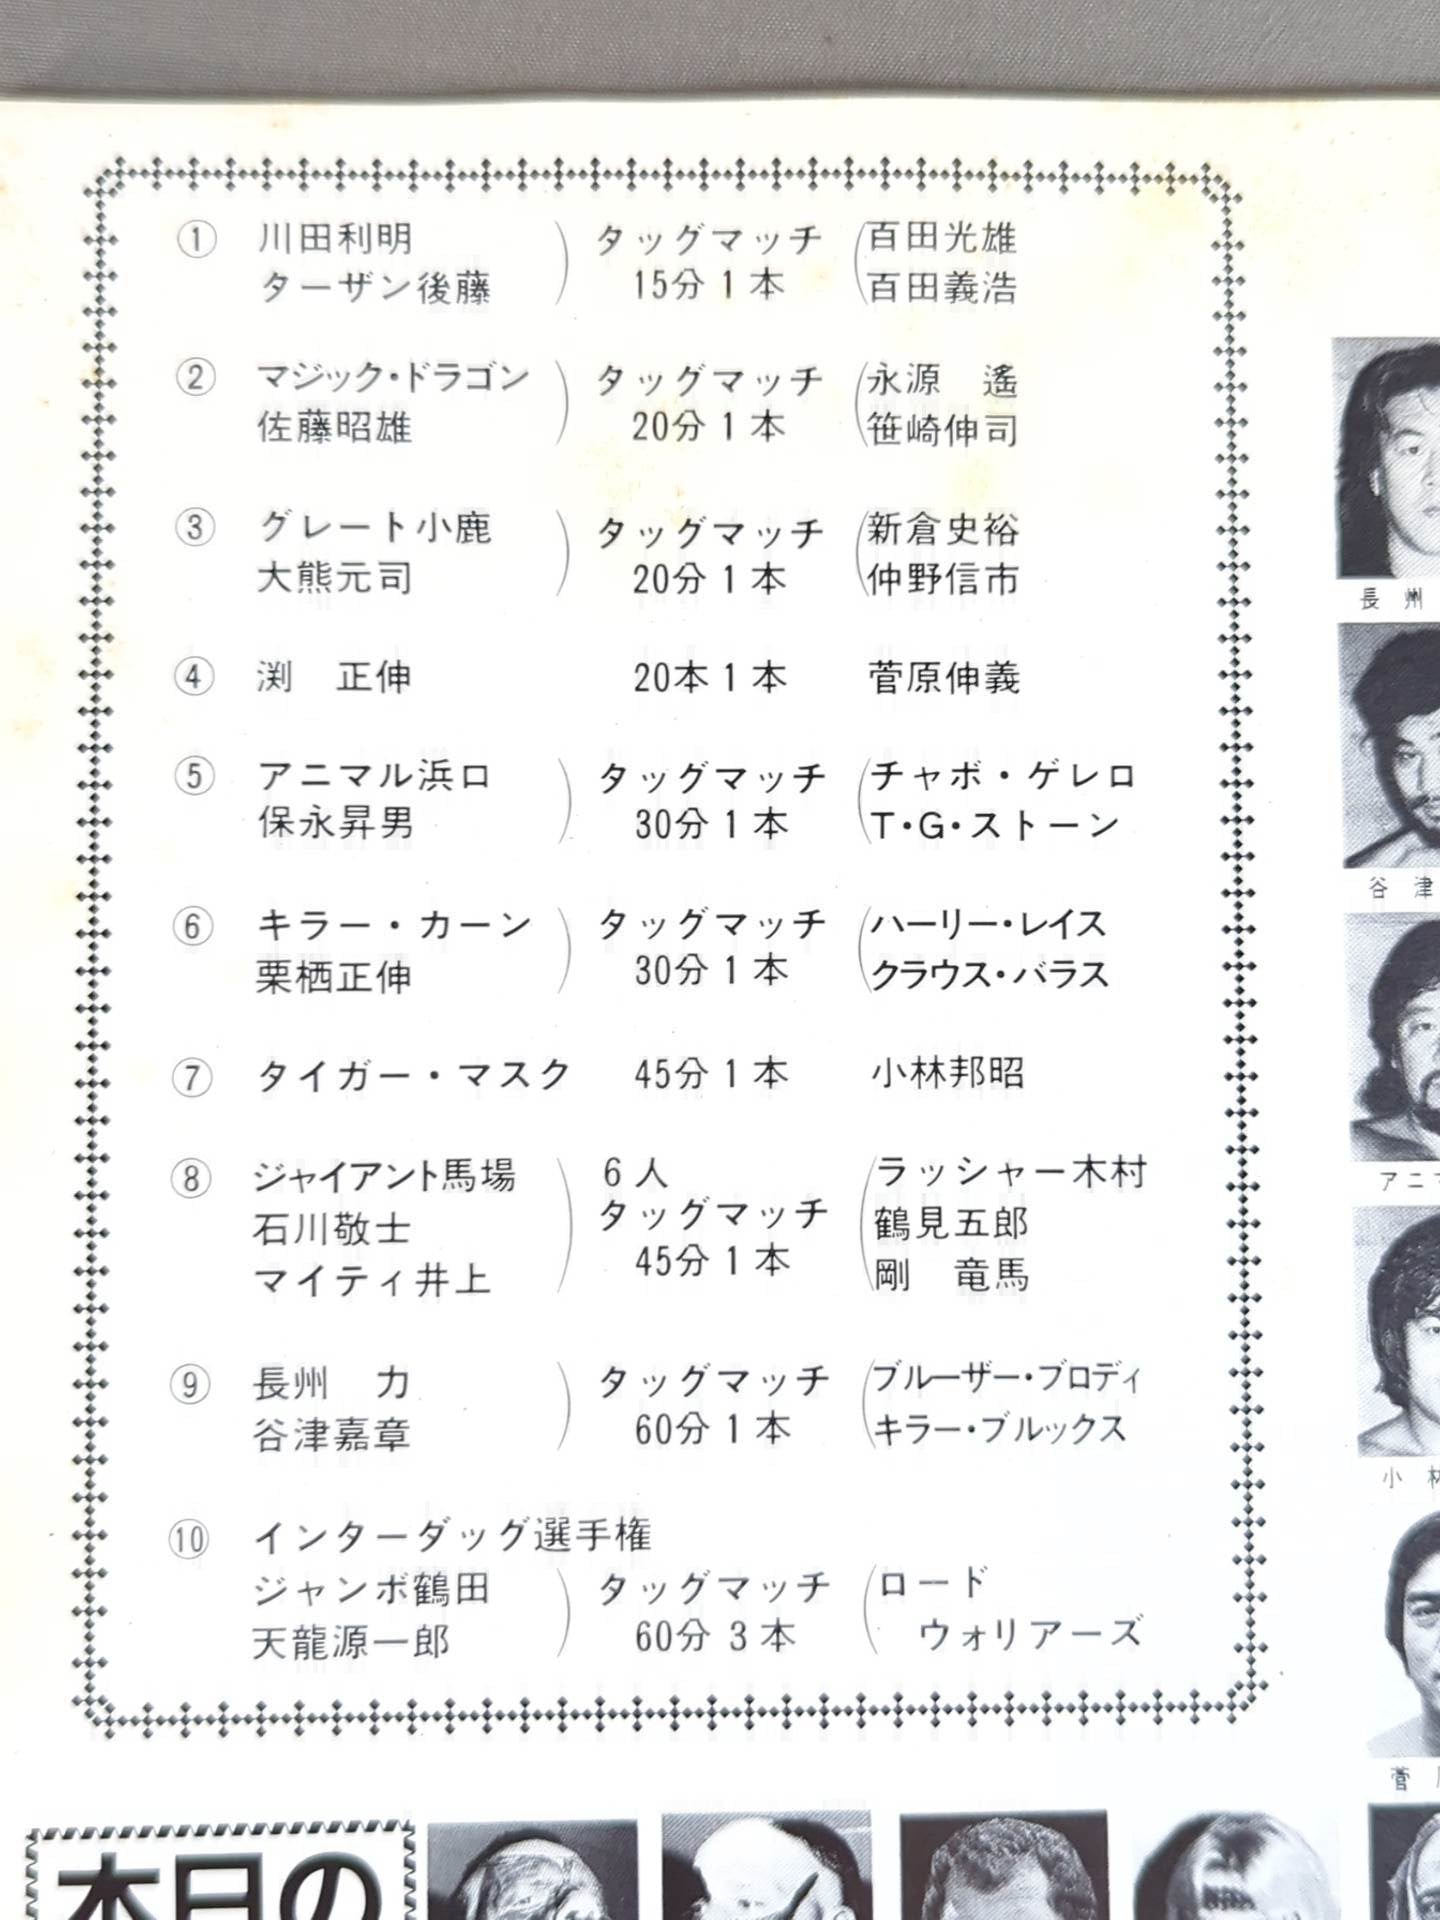 ① 川田利明 タッグマッチ 百田光雄
ターザン後藤 15分1本 百田義浩
② マジック・ドラゴン タッグマッチ 永源 遙
佐藤昭雄 20分1本 笹崎伸司
③ グレート小鹿 タッグマッチ 新倉史裕
大熊元司 20分1本 仲野信市
④ 渕 正伸 20本1本 菅原伸義
⑤ アニマル浜口 タッグマッチ チャボ・ゲレロ
保永昇男 30分1本 T・G・ストーン
⑥ キラー・カーン タッグマッチ ハーリー・レイス
栗栖正伸 30分1本 クラウス・バラス
⑦ タイガー・マスク 45分1本 小林邦昭
⑧ ジャイアント馬場 6人 ラッシャー木村
石川敬士 タッグマッチ 鶴見五郎
マイティ井上 45分1本 剛 竜馬
⑨ 長州 力 タッグマッチ ブルーザー・ブロディ
谷津嘉章 60分1本 キラー・ブルックス
⑩ インターダッグ選手権
ジャンボ鶴田 タッグマッチ ロード
天龍源一郎 60分3本 ウォリアーズ
長 州
谷 津
アニマ
小 林
菅
本日の